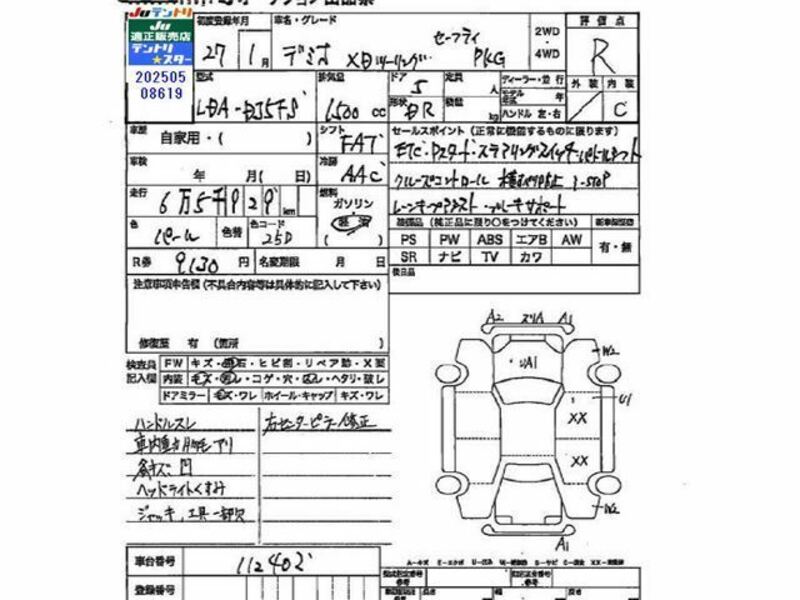 Juテントリ
Ju
適正販売店
テントリ
★スター
202505
08619
初度登録年月
27年1月
車名・グレード
デミオ XDツーリング セーフティ PKG
2WD
4WD
評価点
R
外装 内装
C
型式
LDA-DJ5FS
排気量
1500 cc
ドア
5
形状
定員
人
積量
kg
ディーラー・並行
モデル年式 年
ハンドル 左・右
車歴
自家用・( )
シフト
FAT
冷房
AAC
車検
年 月( 日)
走行
6万5千929km
燃料
ガソリン
軽油
( )
色
パール
色替
色コード
25D
R券
9130円
名変期限 月 日
セールスポイント (正常に機能するものに限ります)
ETC・Pスタート・ステアリングスイッチ・パドルシフト
クルーズコントロール 横すべり防止 i-STOP
レーンキープアシスト・ブレーキサポート
装備品 (純正品に限り○をつけてください)
新車保証書
PS PW ABS エアB AW
有・無
SR ナビ TV カワ
後日品
注意事項申告欄 (不具合内容等は具体的に記入して下さい)
修復歴 有 (箇所
検査員
記入欄
FW キズ・飛石・ヒビ割・リペア跡・X要
内装 キズ・汚レ・コゲ・穴・ハレ・ヘタリ・破レ
ドアミラー キズ・ワレ ホイール・キャップ キズ・ワレ
ハンドルスレ
右センターピラー修正
車内
小キズ 凹
ヘッドライトくすみ
ジャッキ、工具一部欠
A2 ズリA A1
UA1
W2
U1
XX
XX
W2
A1
車台番号
112402
登録番号
A-キズ E-エクボ